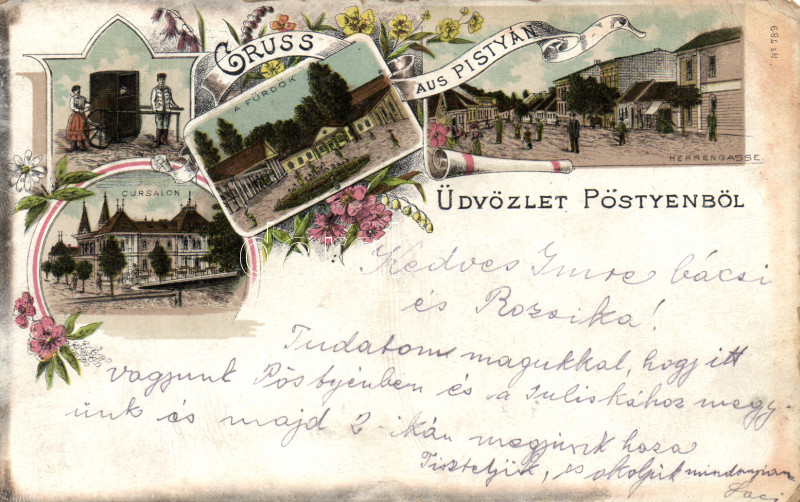 GRUSS
AUS PISTYÁN
A FÜRDŐK
HERRENGASSE
CURSALON
ÜDVÖZLET PÖSTYENBÖL
Kedves Imre bácsi
és Rozsika!
Tudatom magukkal, hogy itt
vagyunk Pöstyénben és a Juliskához megy-
ünk és majd 2-ikán megyünk haza
Tiszteljük, és csokoljuk mindanyian
Laci